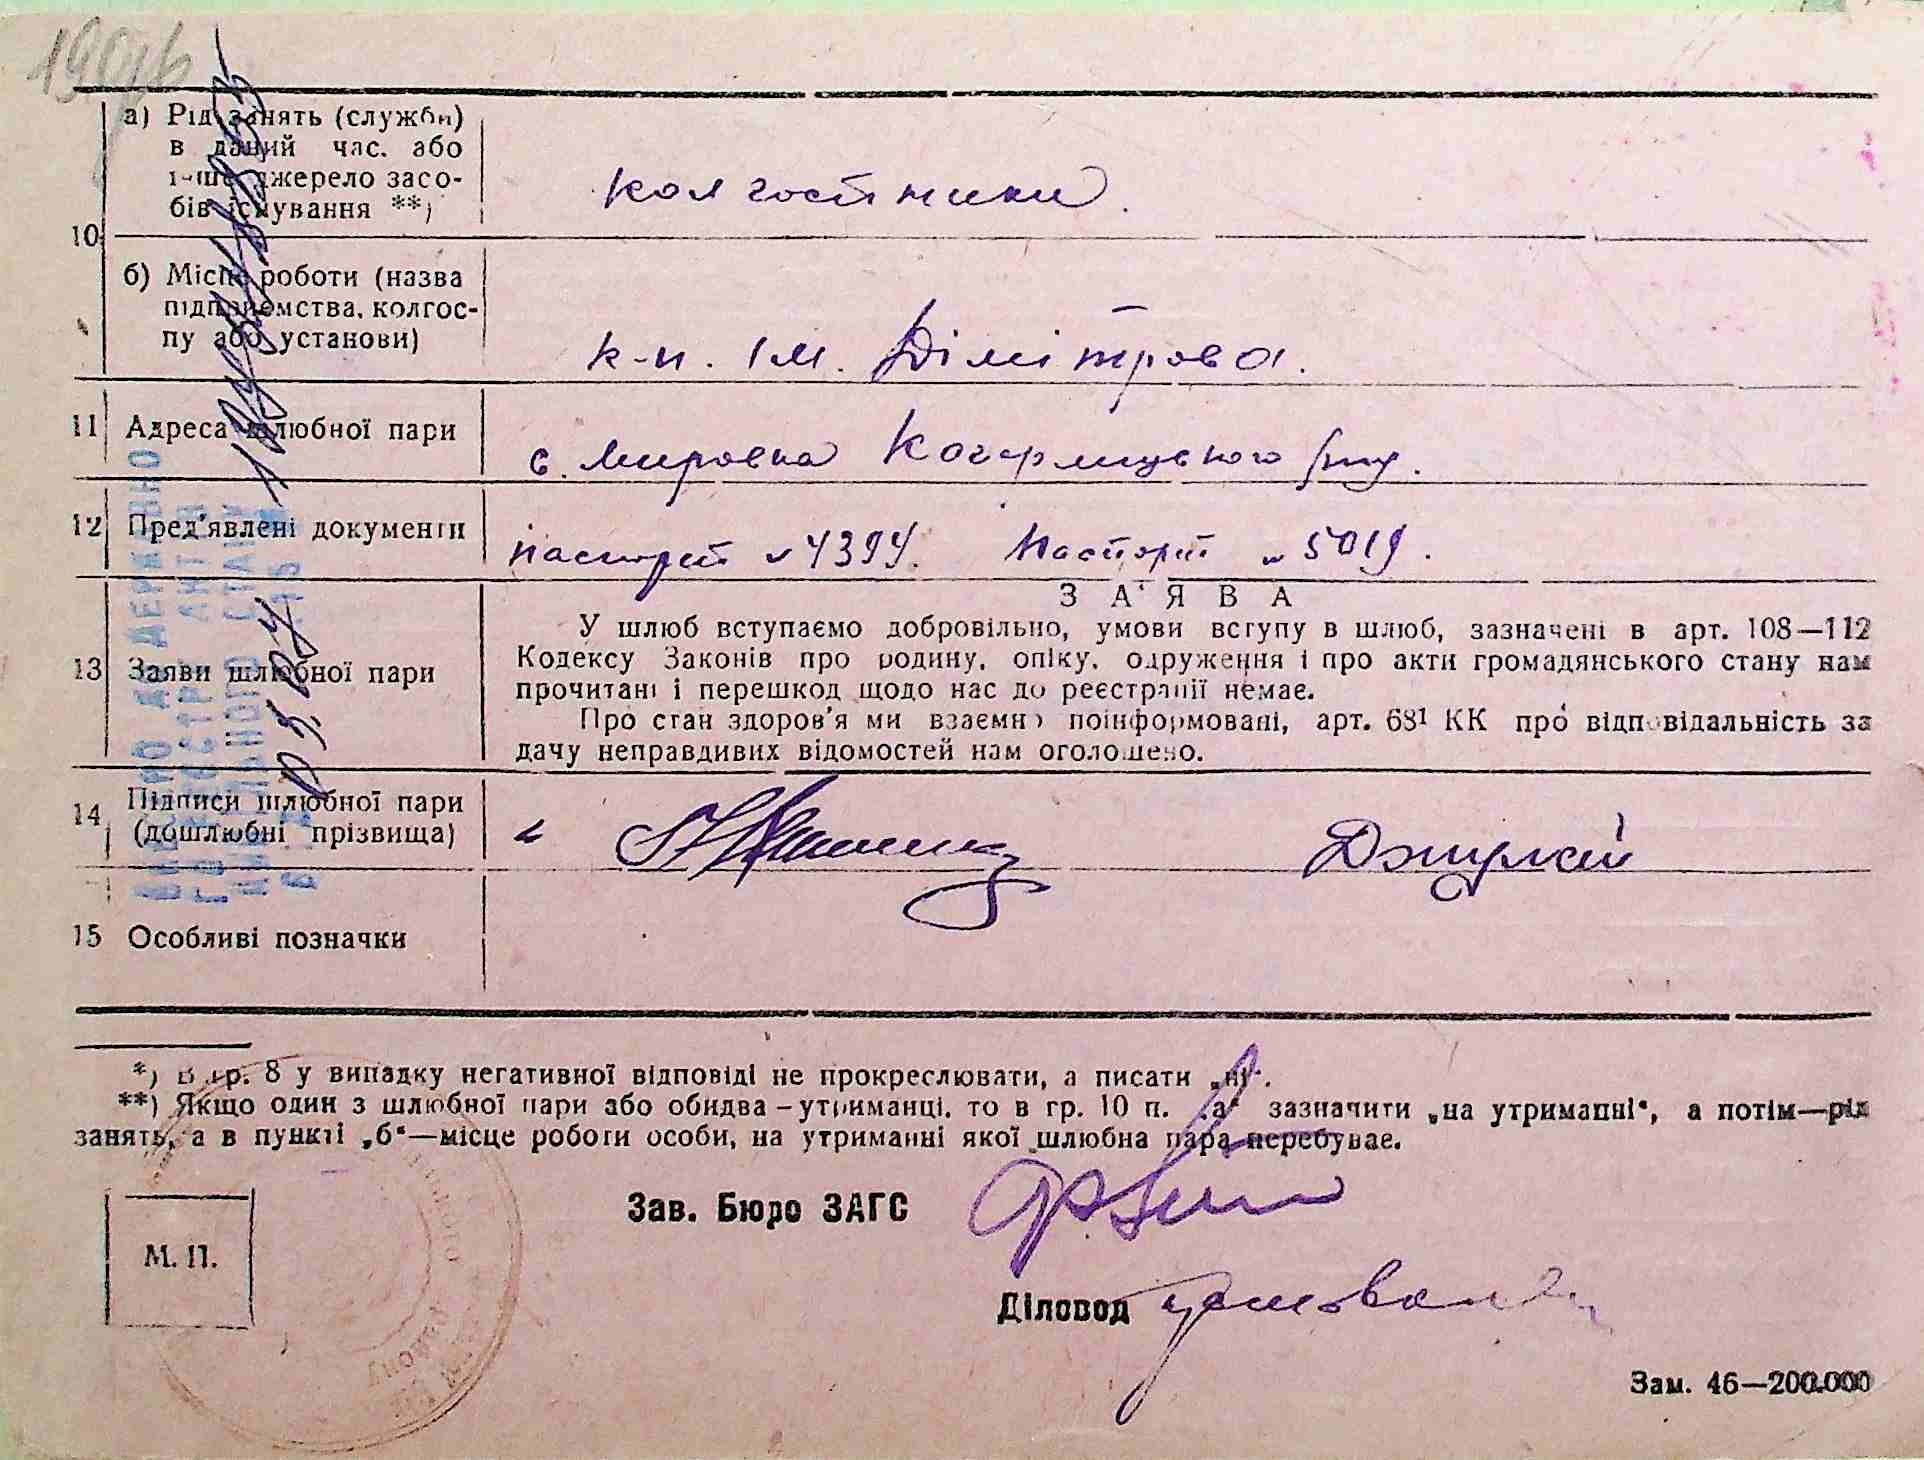 а) Рід занять (служби)
в даний час, або
інше джерело засо-
бів існування **)
колгоспники.
10
б) Місце роботи (назва
підприємства, колгос-
пу або установи)
к-п. ім. Дімітрова.
11 Адреса шлюбної пари
с. Мировка Кагарлицького р-ну.
12 Пред'явлені документи
паспорт № 4394. Паспорт № 5019.
13 Заяви шлюбної пари
ЗА'ЯВА
У шлюб вступаємо добровільно, умови вступу в шлюб, зазначені в арт. 108—112
Кодексу Законів про родину, опіку, одруження і про акти громадянського стану нам
прочитані і перешкод щодо нас до реєстрації немає.
Про стан здоров'я ми взаємно поінформовані, арт. 68¹ КК про відповідальність за
дачу неправдивих відомостей нам оголошено.
14 Підписи шлюбної пари
(дошлюбні прізвища)
15 Особливі позначки
*) В гр. 8 у випадку негативної відповіді не прокреслювати, а писати „ні“.
**) Якщо один з шлюбної пари або обидва – утриманці, то в гр. 10 п. „а“ зазначити „на утриманні“, а потім—рід
занять, а в пункті „б“—місце роботи особи, на утриманні якої шлюбна пара перебуває.
Зав. Бюро ЗАГС
М. П.
Діловод
Зам. 46—200.000